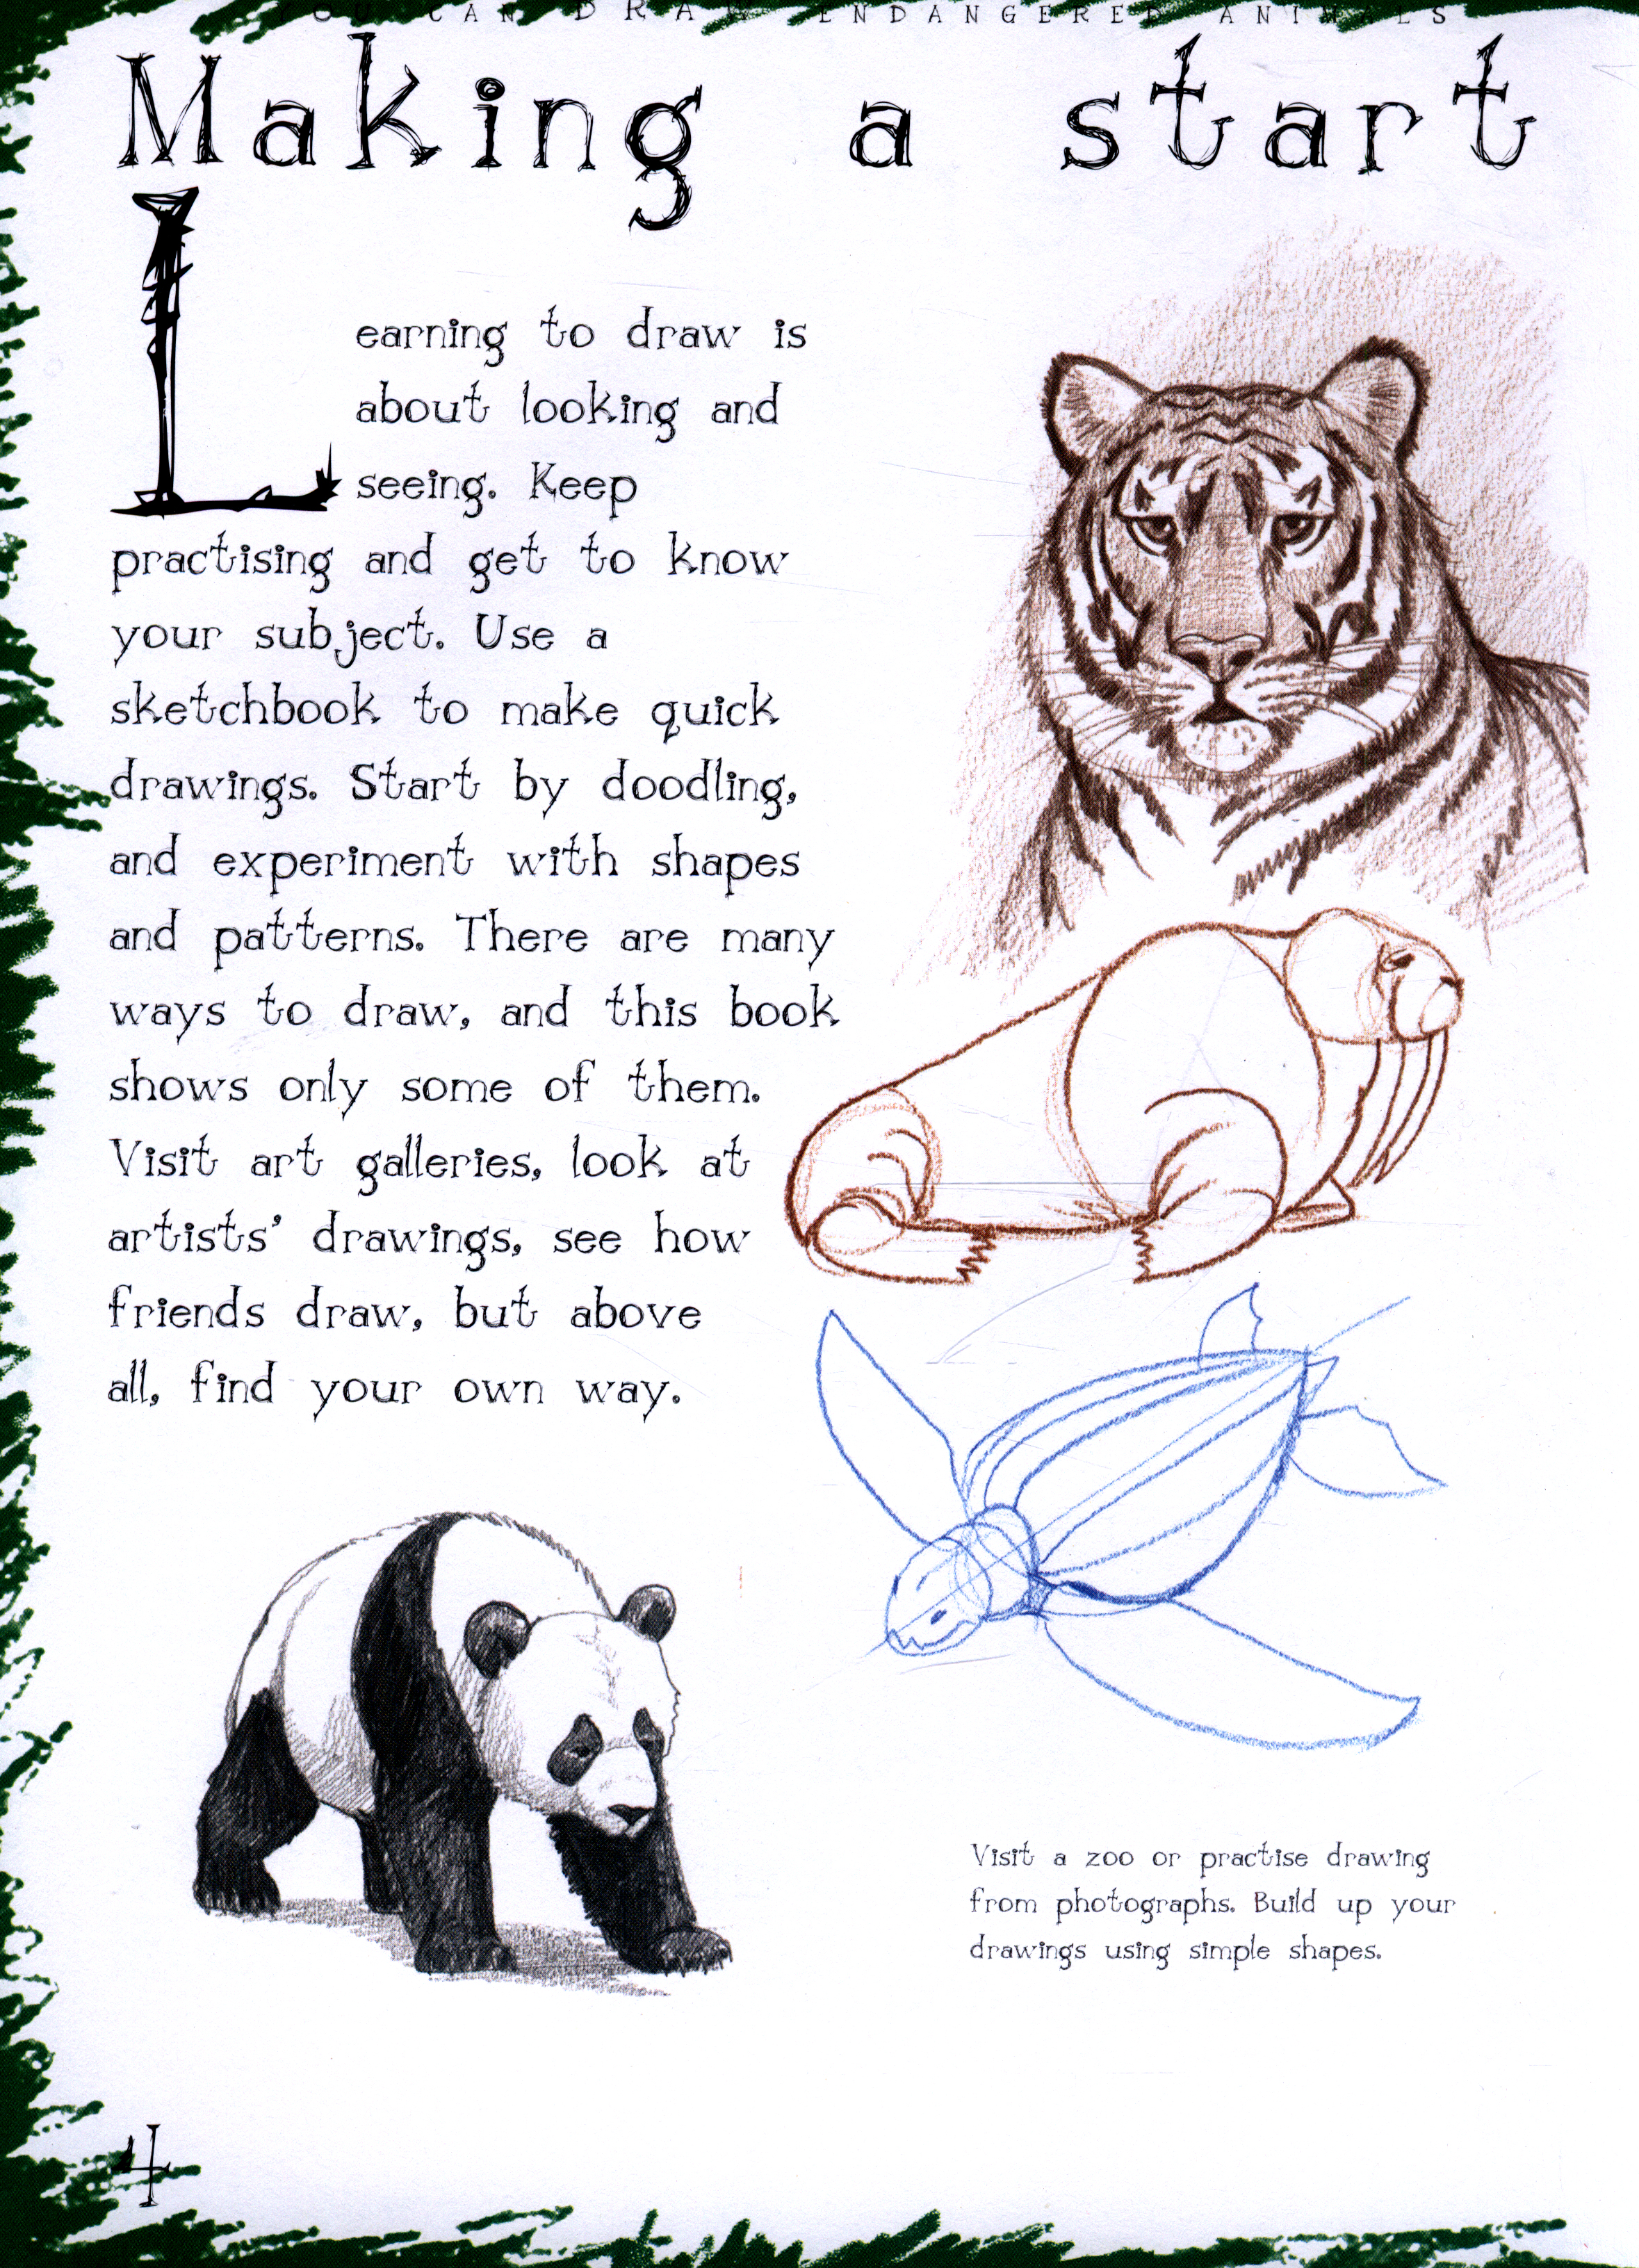 YOU CAN DRAW ENDANGERED ANIMALS
Making a start
Learning to draw is
about looking and
seeing. Keep
practising and get to know
your subject. Use a
sketchbook to make quick
drawings. Start by doodling,
and experiment with shapes
and patterns. There are many
ways to draw, and this book
shows only some of them.
Visit art galleries, look at
artists' drawings, see how
friends draw, but above
all, find your own way.
Visit a zoo or practise drawing
from photographs. Build up your
drawings using simple shapes.
4